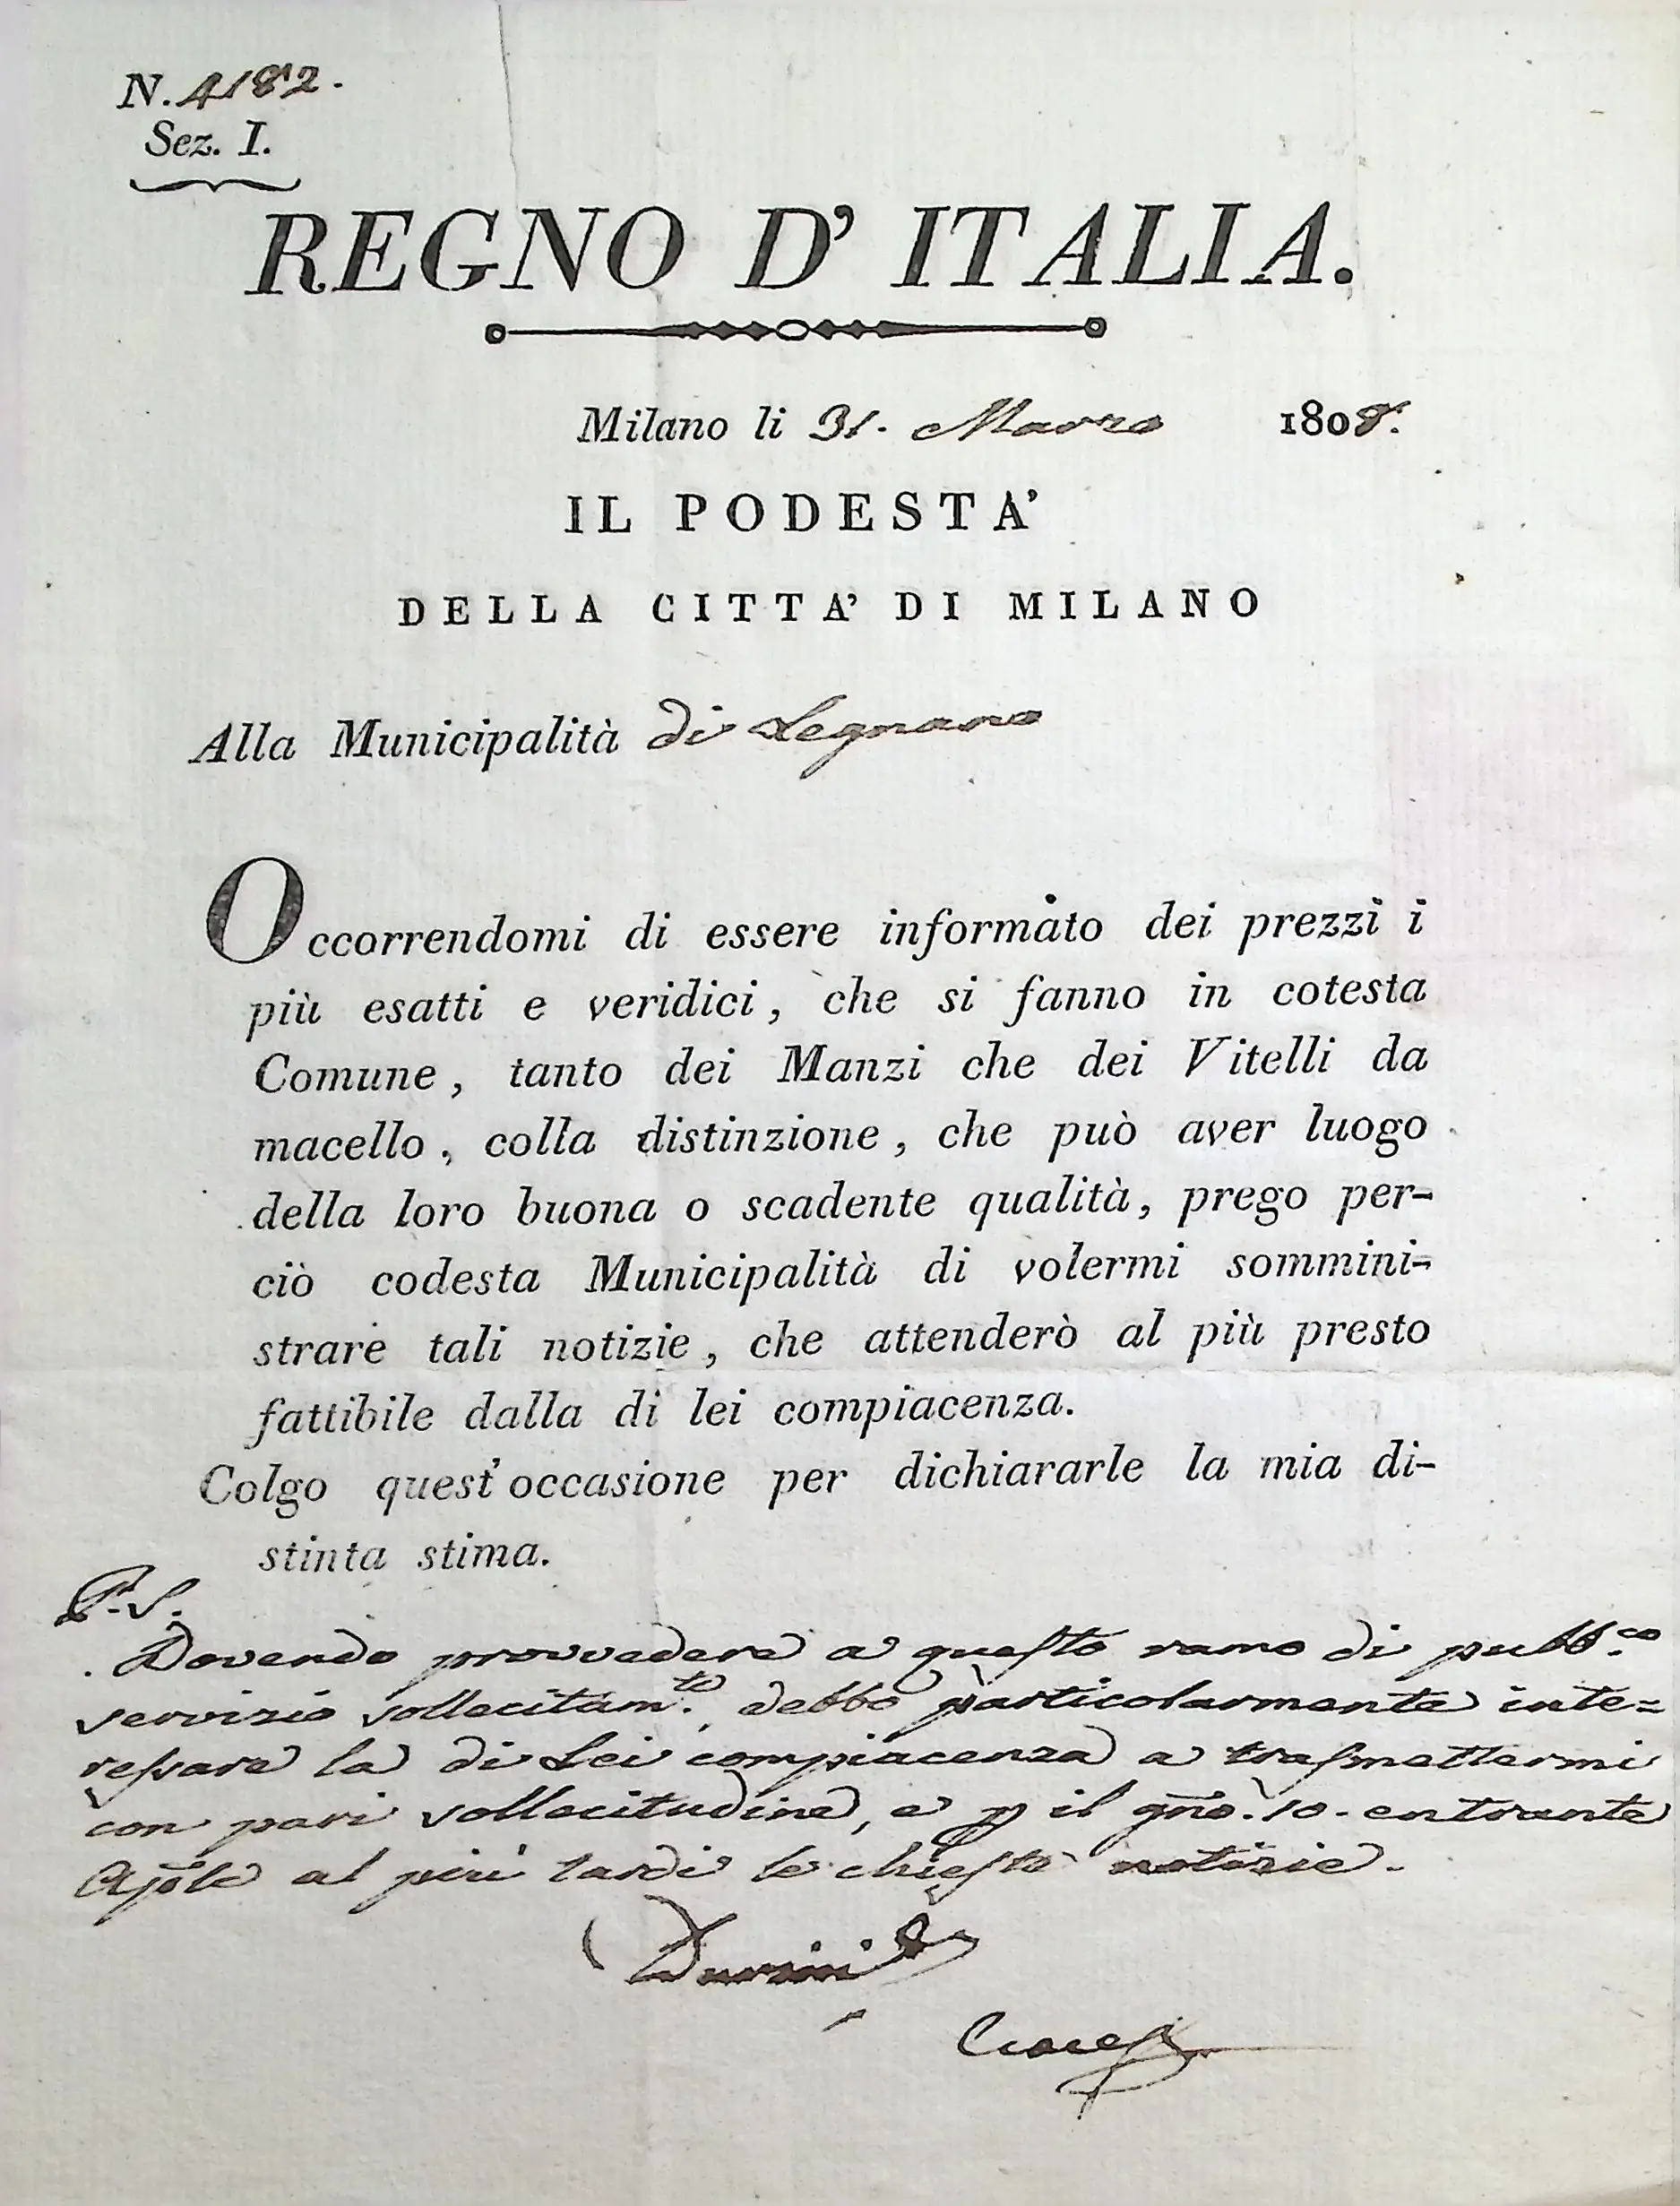 N. 4182.
Sez. I.
REGNO D' ITALIA.
Milano li 31. Marzo 1808.
IL PODESTA'
DELLA CITTA' DI MILANO
Alla Municipalità di Legnano
Occorrendomi di essere informato dei prezzi i
più esatti e veridici, che si fanno in cotesta
Comune, tanto dei Manzi che dei Vitelli da
macello, colla distinzione, che può aver luogo
della loro buona o scadente qualità, prego per-
ciò codesta Municipalità di volermi sommini-
strare tali notizie, che attenderò al più presto
fattibile dalla di lei compiacenza.
Colgo quest'occasione per dichiararle la mia di-
stinta stima.
P.S.
Dovendo provvedere a questo ramo di pubb.co
servizio sollecitam.te debbo particolarmente inte=
ressare la di Lei compiacenza a trasmettermi
con pari sollecitudine, e p il gno. 10. entrante
Aprile al più tardi le chieste notizie.
Durini